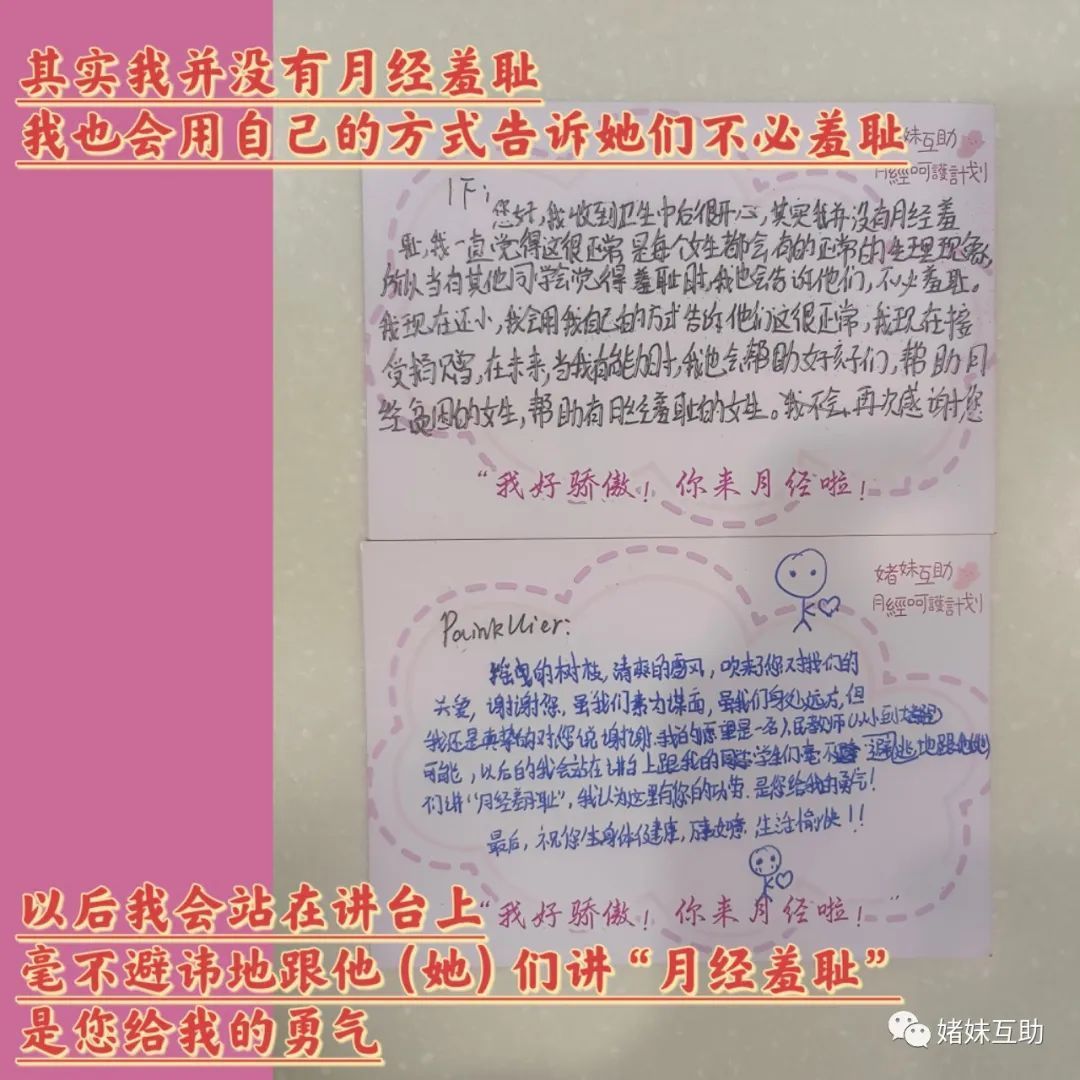 其实我并没有月经羞耻
我也会用自己的方式告诉她们不必羞耻
妹互助
月經呵護計划
您好,我收到卫生巾后很开心,其实我并没有月经羞
耻,我一直觉得这很正常,是每个女生都会有的正常的生理现象,
所以当有其他同学会觉得羞耻时,我也会告诉他们,不必羞耻。
我现在还小,我会用我自己的方式告诉他们这很正常,我现在接
受捐赠,在未来,当我有能力时,我也会帮助女孩子们,帮助月
经贫困的女生,帮助有月经羞耻的女生。我不会.再次感谢您
“我好骄傲!你来月经啦!
媎妹互助
月經呵護計划
Painkller:
摇曳的树枝,清爽的夏风,吹来了您对我们的
关爱,谢谢您,虽我们素为谋面,虽我们身处远方,但
我还是真挚的对您说谢谢.我的愿望是一名人民教师(从小到大)
可能,以后的我会站在讲台上跟我的学生们毫不避逃地跟他(她)
们讲“月经羞耻”,我认为这里有您的功劳.是您给我的勇气!
最后,祝您身体健康,万事如意,生活愉快!!
“我好骄傲!你来月经啦!”
以后我会站在讲台上
毫不避讳地跟他(她)们讲“月经羞耻”
是您给我的勇气
媎妹互助